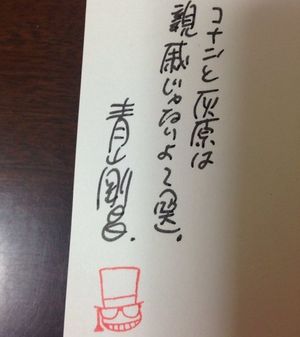 コナンと灰原は
親戚じゃないよ〜(笑)。
青山剛昌.